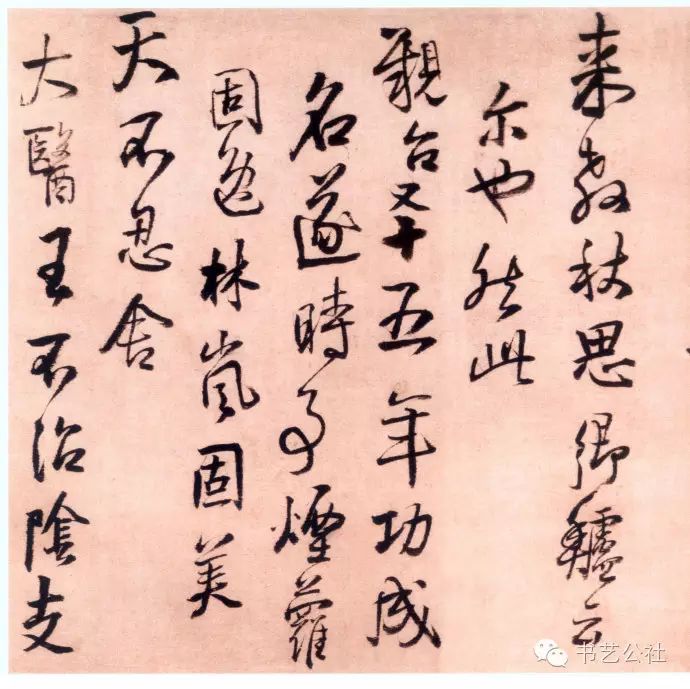 来教秋思鄉鱸云
尔也然此
親合又十五年功成
名遂時事煙蘿
固逸林嵐固美
天不忍舍
大醫王不治陰支
书艺公社